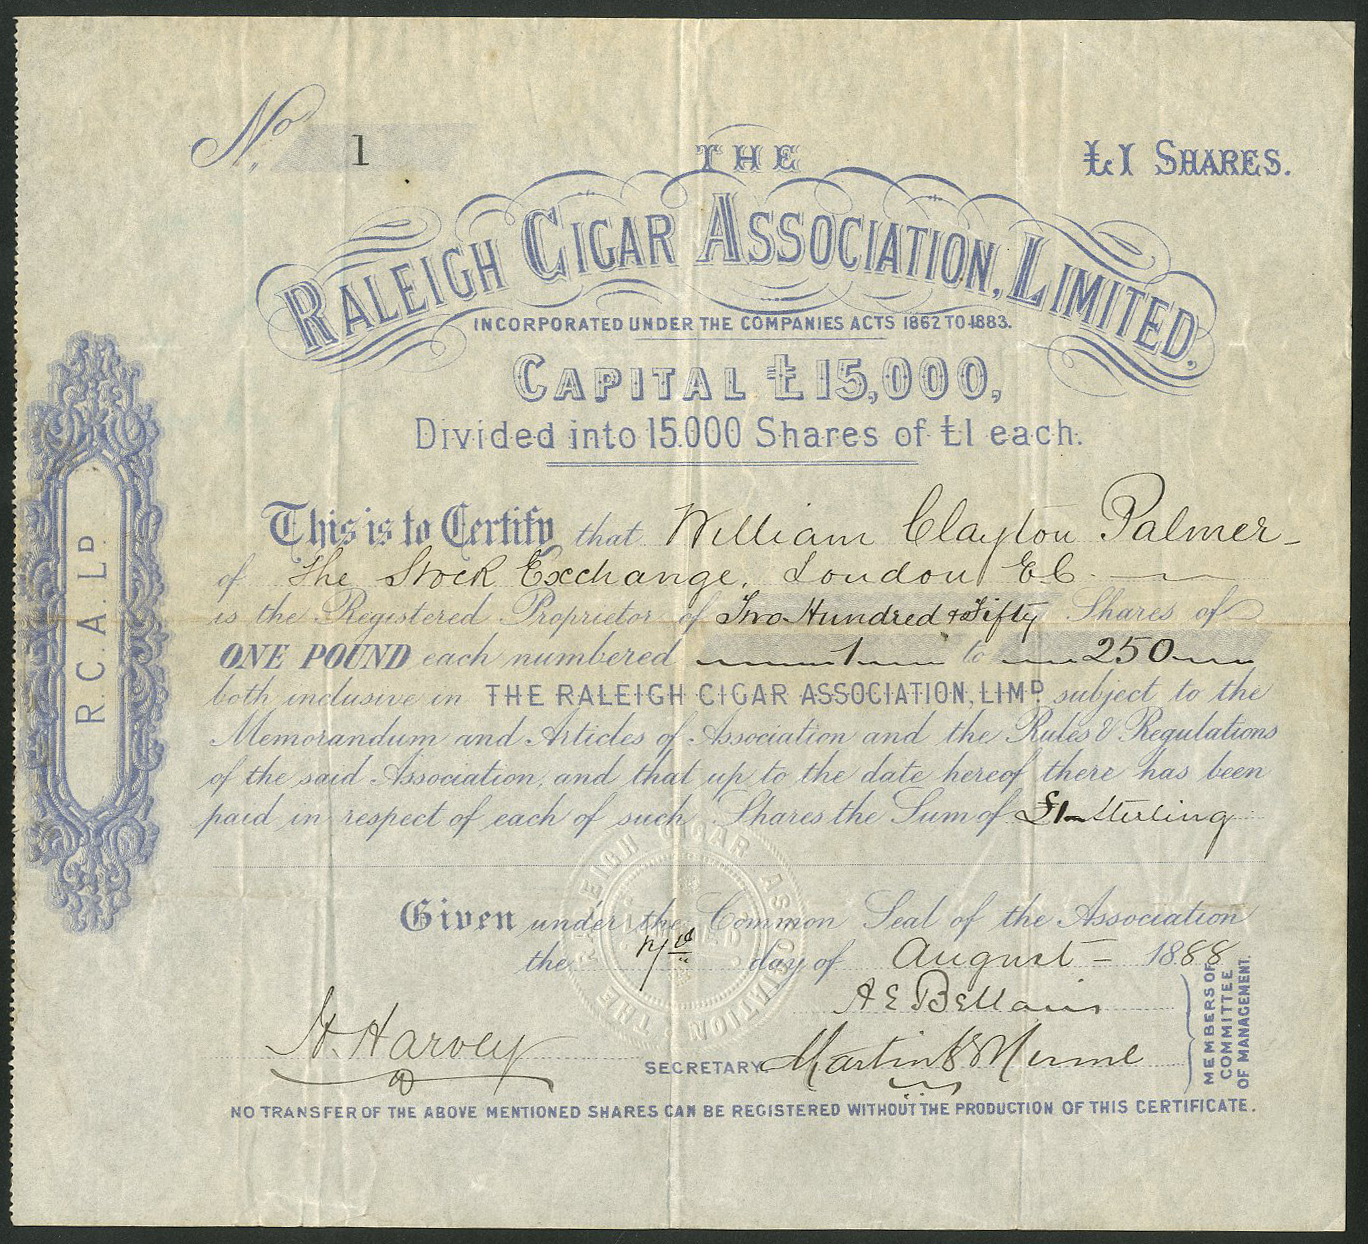 No. 1
£1 SHARES.
THE
RALEIGH CIGAR ASSOCIATION, LIMITED,
INCORPORATED UNDER THE COMPANIES ACTS 1862 TO 1883.
CAPITAL £15,000,
Divided into 15.000 Shares of £1 each.
This is to Certify that William Clayton Palmer
of The Stock Exchange, London E C
is the Registered Proprietor of Two Hundred & Fifty Shares of
ONE POUND each numbered 1 to 250
both inclusive in THE RALEIGH CIGAR ASSOCIATION, LIMD. subject to the
Memorandum and Articles of Association and the Rules & Regulations
of the said Association, and that up to the date hereof there has been
paid in respect of each of such Shares the Sum of £1 Sterling
Given under the Common Seal of the Association
the day of August 1888
A E
H. Harvey SECRETARY Martin
MEMBERS OF
COMMITTEE
OF MANAGEMENT.
NO TRANSFER OF THE ABOVE MENTIONED SHARES CAN BE REGISTERED WITHOUT THE PRODUCTION OF THIS CERTIFICATE.
R.C.A.LD.
THE RALEIGH CIGAR ASSOCIATION